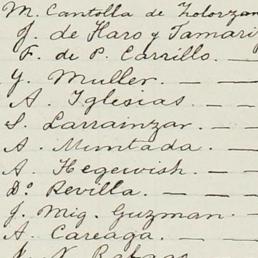 M. Cantolla de Zolorzan
J. de Haro y Tamari
F. de P. Carrillo. —
J. Muller. — —
A. Iglesias — —
S. Larrainzar. —
A. Muntada. —
A. Hegewish. — —
Do. Revilla. — — —
J. Mig. Guzman. —
A. Careaga. — —
J. N.